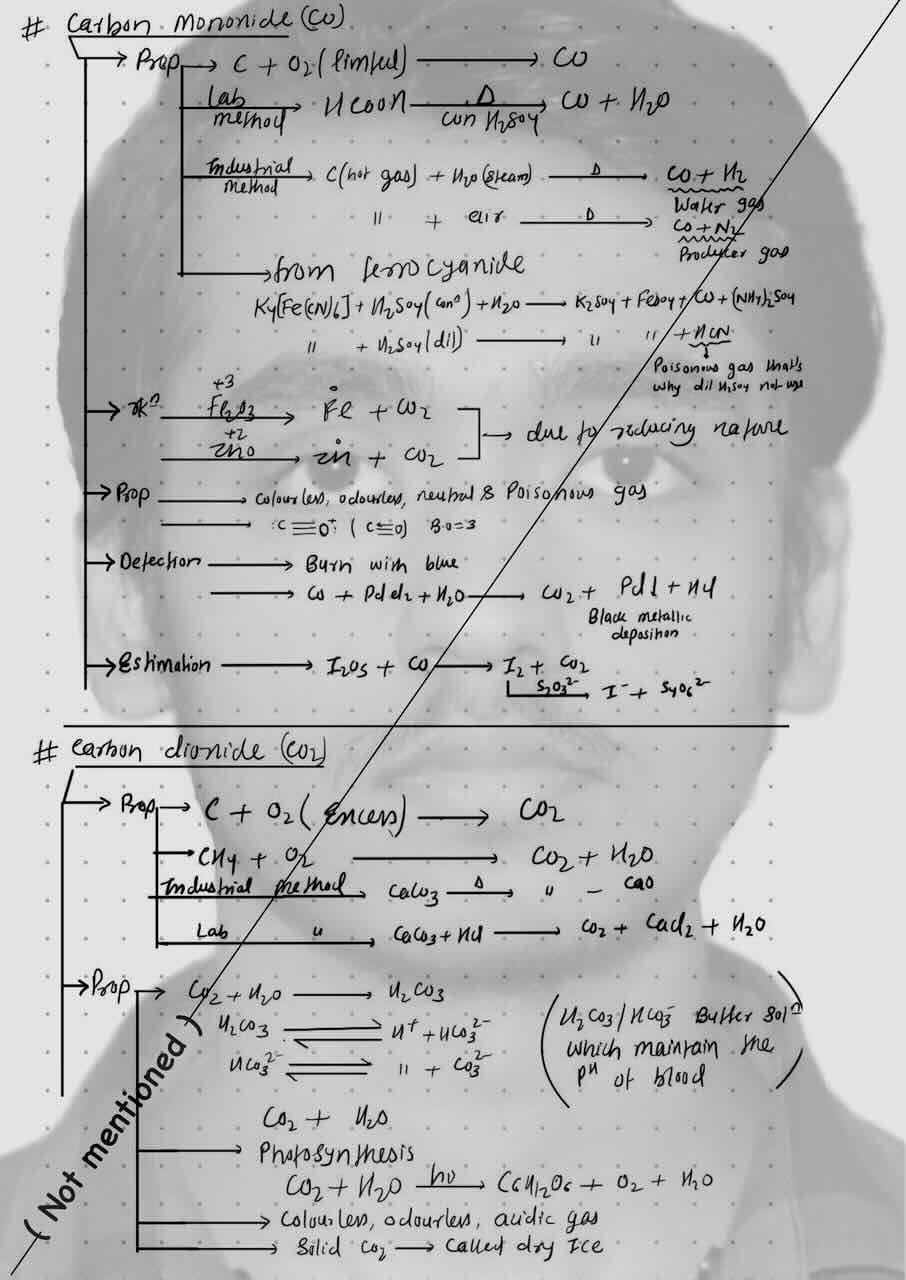 # Carbon Mononide (CO)
→ Prop → C + O2 (limited) → CO
Lab method → HCOOH —Δ→ con H2SO4 CO + H2O
Industrial method → C (hot gas) + H2O (steam) —Δ→ CO + H2
Water gas
〃 + air —Δ→ CO + N2
Producer gas
→ from ferrocyanide
K4[Fe(CN)6] + H2SO4 (conⁿ) + H2O → K2SO4 + FeSO4 + CO + (NH4)2SO4
〃 + H2SO4 (dil) → 〃 〃 + HCN
Poisonous gas that's
why dil H2SO4 not use
→ rxⁿ +3 Fe2O3 → Fe° + CO2
+2 ZnO → Zn + CO2
→ due to reducing nature
→ Prop → Colourless, odourless, neutral & Poisonous gas
→ :C≡O⁺: (C≡O) B.O = 3
→ Detection → Burn with blue
→ CO + PdCl2 + H2O → CO2 + Pd↓ + HCl
Black metallic
deposition
→ Estimation → I2O5 + CO → I2 + CO2
S2O3²⁻ → I⁻ + S4O6²⁻
# Carbon dionide (CO2)
→ Prop → C + O2 (Excess) → CO2
→ CH4 + O2 → CO2 + H2O
Industrial method → CaCO3 —Δ→ 〃 – CaO
Lab 〃 → CaCO3 + HCl → CO2 + CaCl2 + H2O
→ Prop → CO2 + H2O → H2CO3
H2CO3 ⇌ H⁺ + HCO3²⁻
HCO3²⁻ ⇌ 〃 + CO3²⁻
(H2CO3/HCO3⁻ Buffer Solⁿ
which maintain the
pH of blood)
CO2 + H2O
→ Photosynthesis
CO2 + H2O —hν→ C6H12O6 + O2 + H2O
→ Colourless, odourless, acidic gas
→ Solid CO2 → Called dry Ice
(Not mentioned)